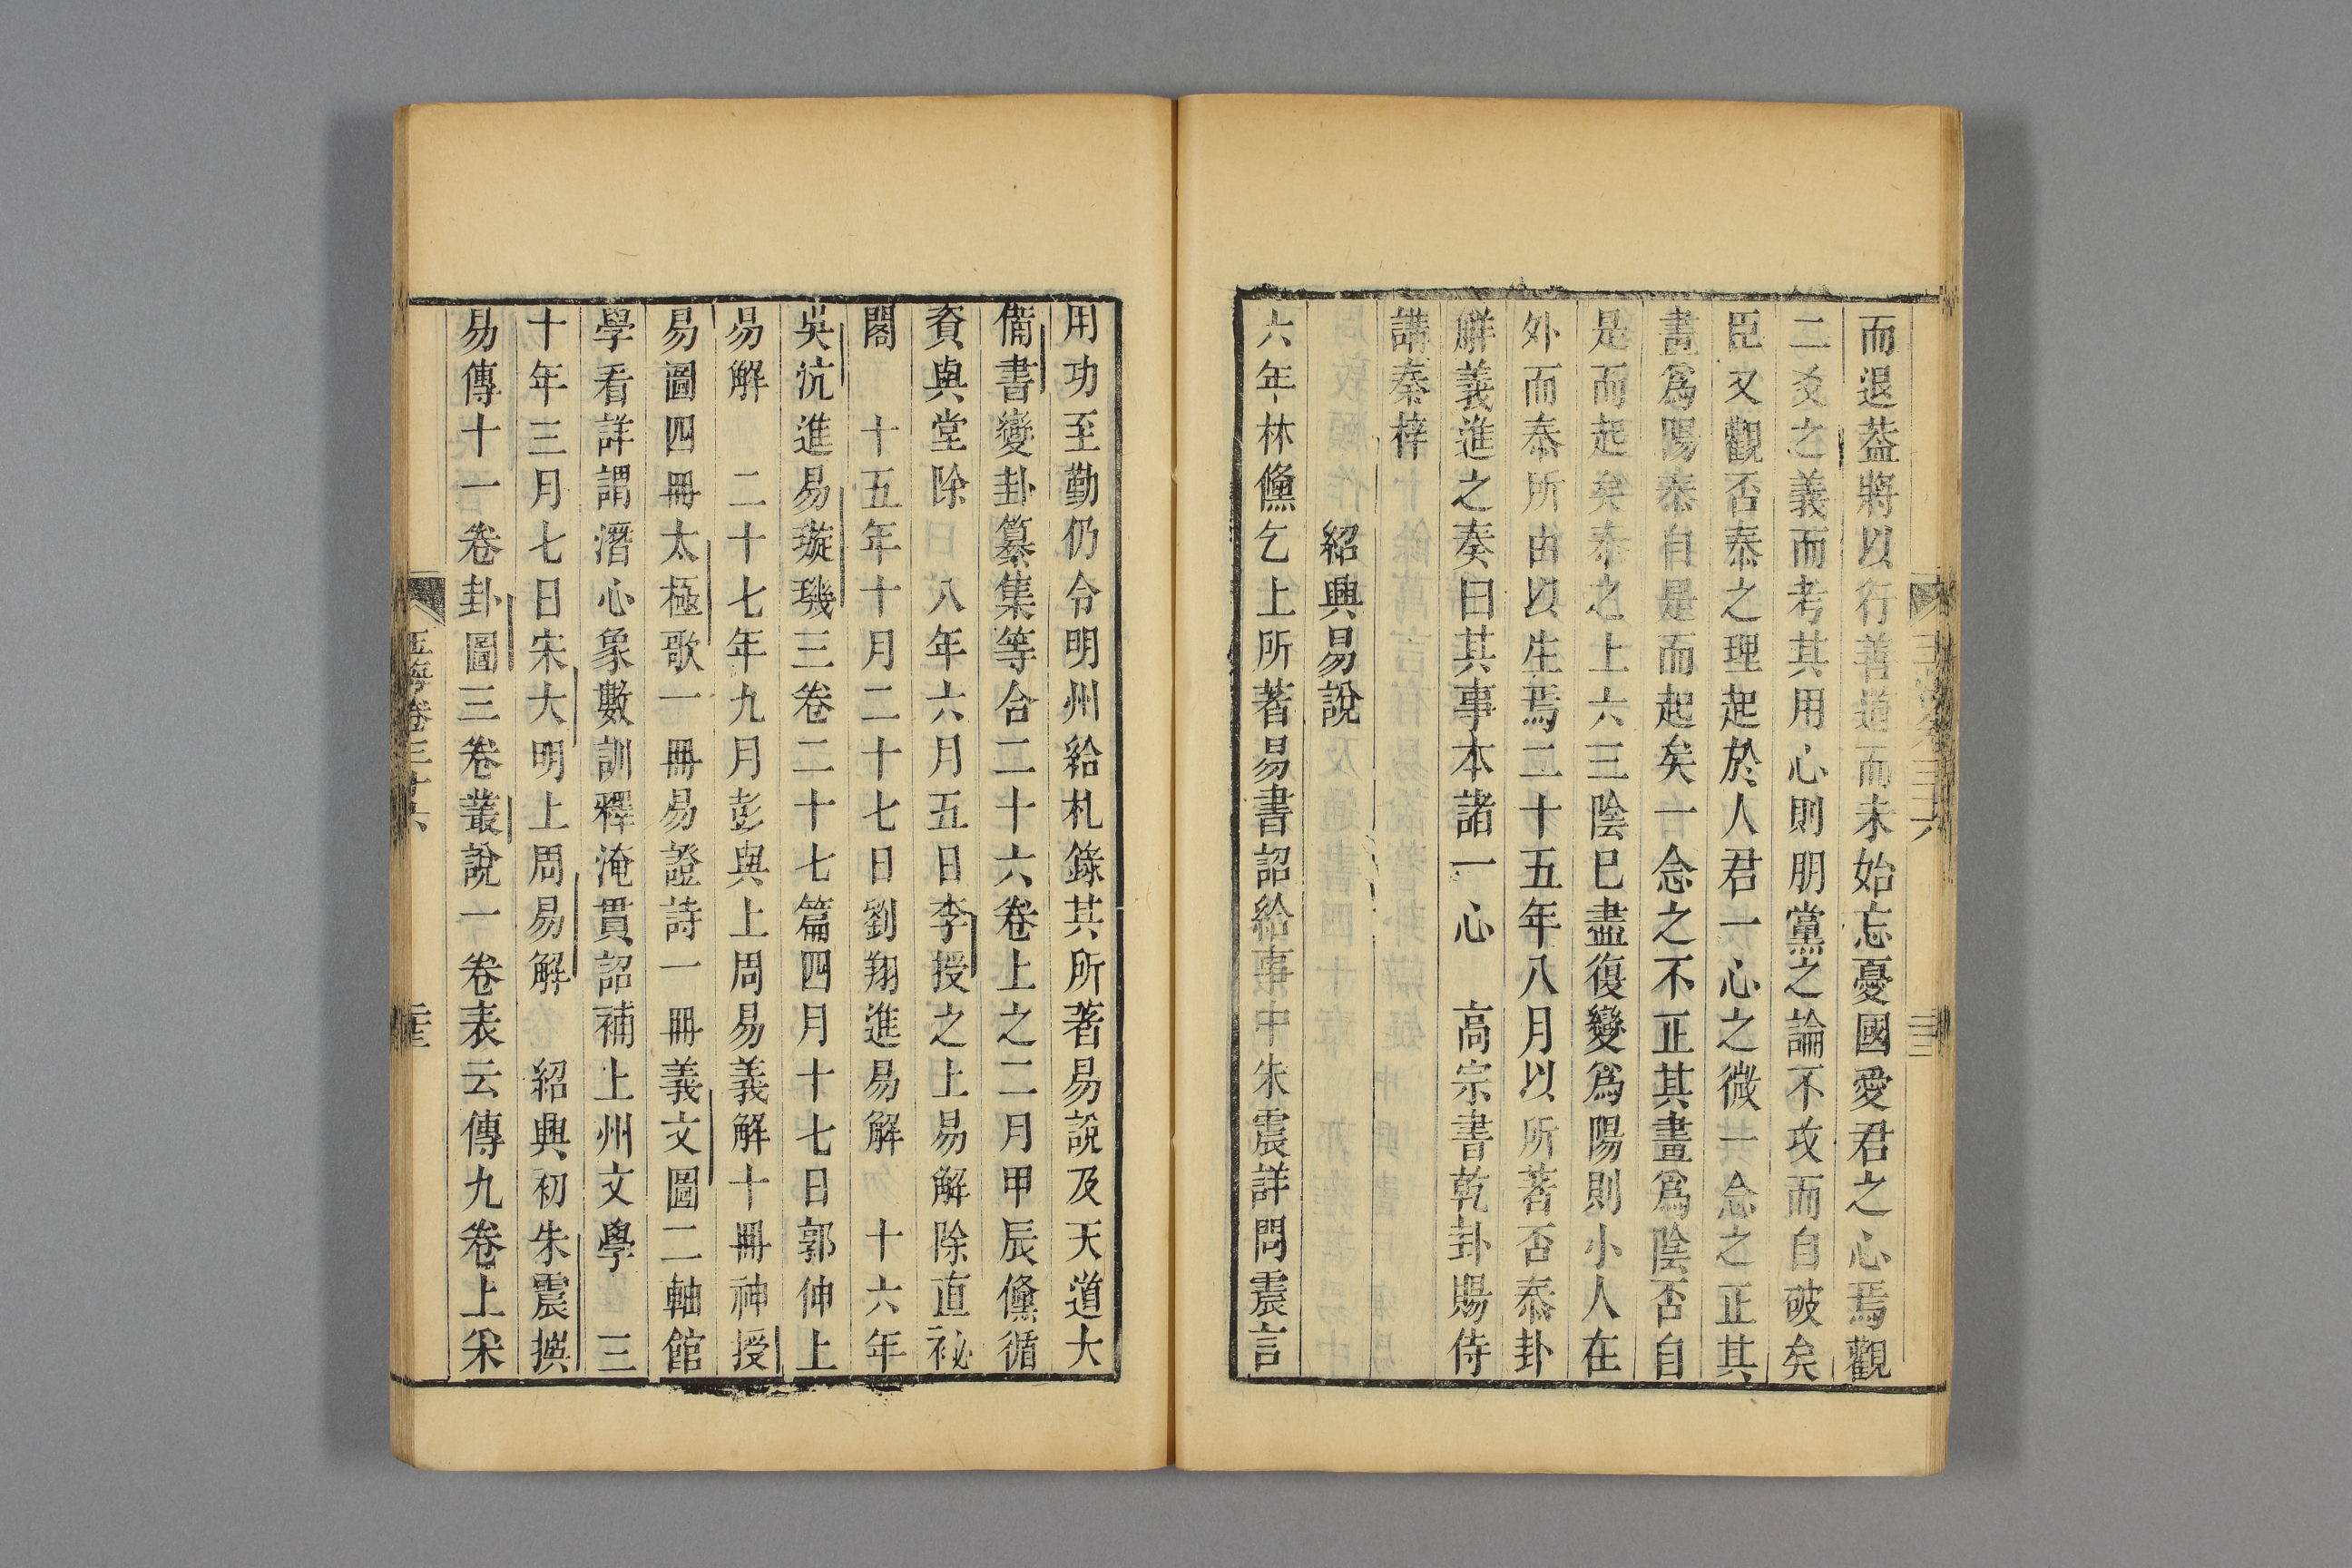 而退葢將以行善道而未始忘憂國愛君之心焉觀
二爻之義而考其用心則朋黨之論不攻而自破矣
臣又觀否泰之理起於人君一心之微一念之正其
畫爲陽泰自是而起矣一念之不正其畫爲陰否自
是而起矣泰之上六三陰巳盡復變爲陽則小人在
外而泰所由以生焉二十五年八月以所著否泰卦
解義進之奏曰其事本諸一心　高宗書乾卦賜侍
講秦梓
紹興易說
六年林儵乞上所著易書詔給事中朱震詳問震言
用功至勤仍令明州給札錄其所著易說及天道大
備書變卦纂集等合二十六卷上之二月甲辰儵循
資與堂除　八年六月五日李授之上易解除直祕
閣　十五年十月二十七日劉翔進易解　十六年
吳沆進易璇璣三卷二十七篇四月十七日郭伸上
易解　二十七年九月彭與上周易義解十冊神授
易圖四冊太極歌一冊易證詩一冊義文圖二軸館
學看詳謂潛心象數訓釋淹貫詔補上州文學　三
十年三月七日宋大明上周易解　紹興初朱震撰
易傳十一卷卦圖三卷叢說一卷表云傳九卷上采
玉海卷三十六